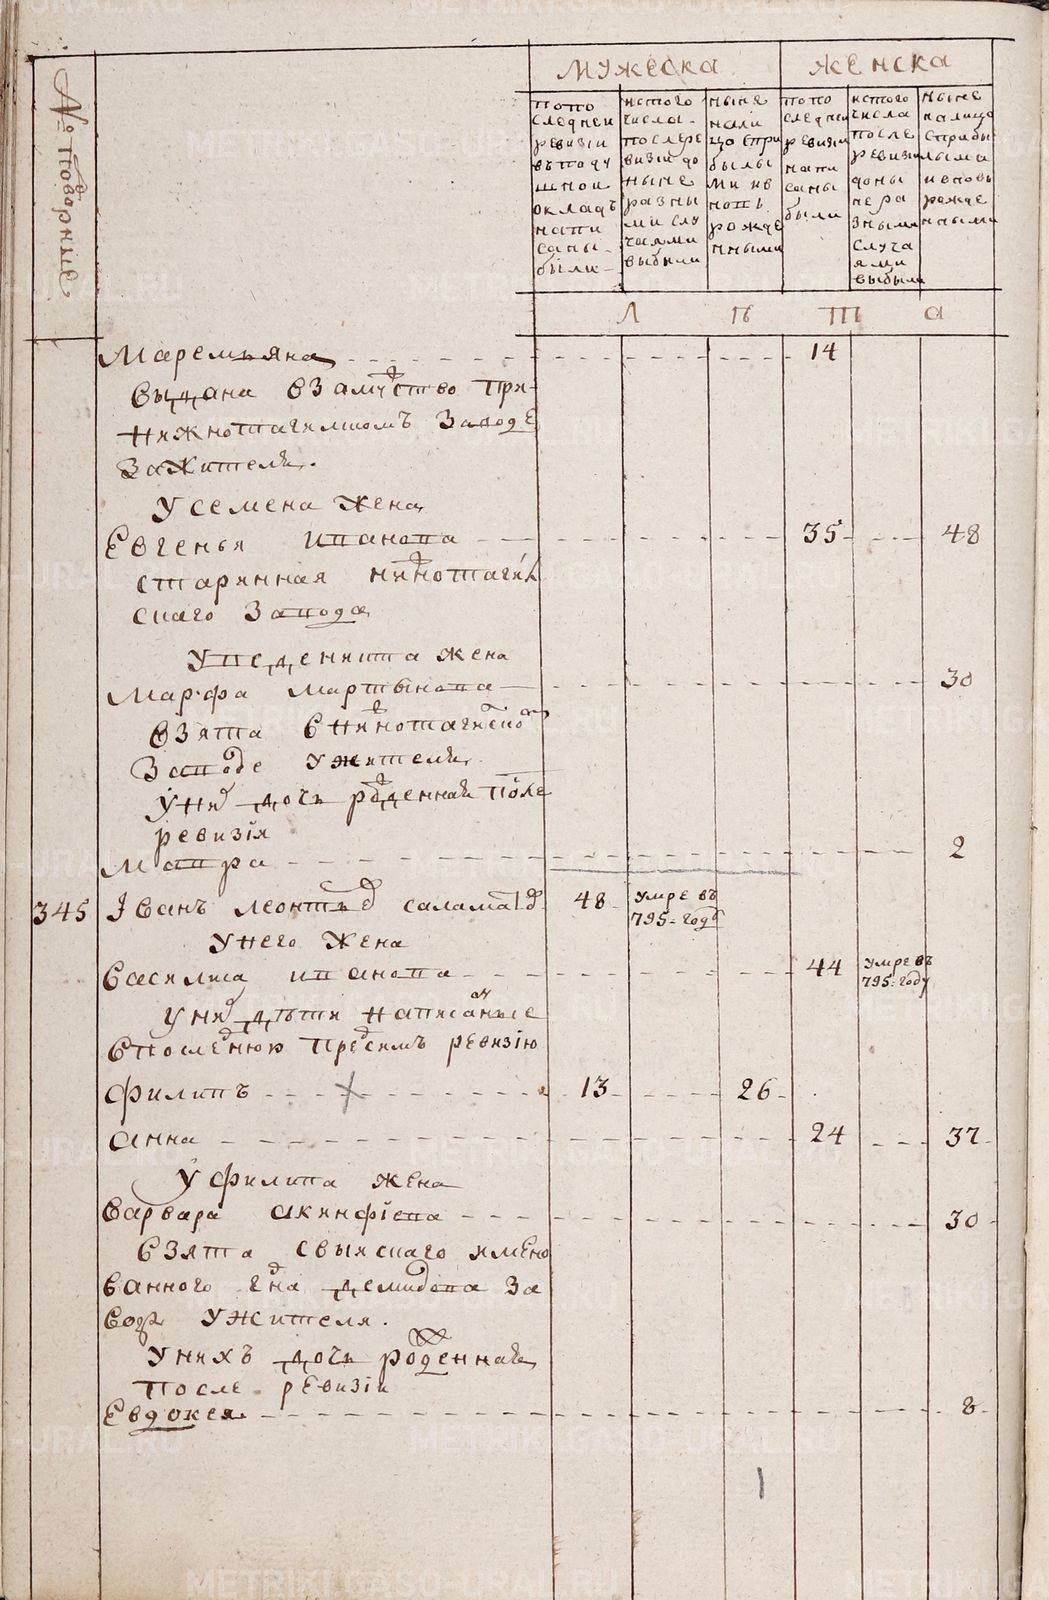 № подворные
мужеска
женска
попо
следнеи
ревизіи
въподу
шнои
окладъ
напи
саны
были
истого
числа
послере
визіи до
ныне
разны
ми слу
чаями
выбыли
ныне
нали
цо спри
былы
ми ив
новь
рожде
нными
попо
следнеи
ревизіи
напи
саны
были
истого
числа
после
ревизіи
доны
не ра
зными
случа
ями
выбыли
ныне
налицо
сприбы
лыми
ивновь
рожде
нными
л е т а
Маремьяна 14
выдана взамуство при
Нижнотагилскомъ заводе
зажителя.
У семена жена
Евгенья иванова 35 48
старинная нижнотагил
скаго завода
Уведенихта жена
Марфа мартынова 30
взята внижнотагилско
заводе ужителя
уних дочь рожденная после
ревизія
Мавра 2
345 Іванъ леонтьев саламатов 48 умре въ
795 годѣ
Унего жена
василиса иванова 44 умре въ
795 году
уних дѣти написанные
впоследнюю предсимъ ревизію
филипъ 13 26
анна 24 37
У филипа жена
варвара акинфіева 30
взята свыяскаго имено
ванного гдна демидова за
вода ужителя.
Унихъ дочь рожденная
после ревизіи
Евдокея 8